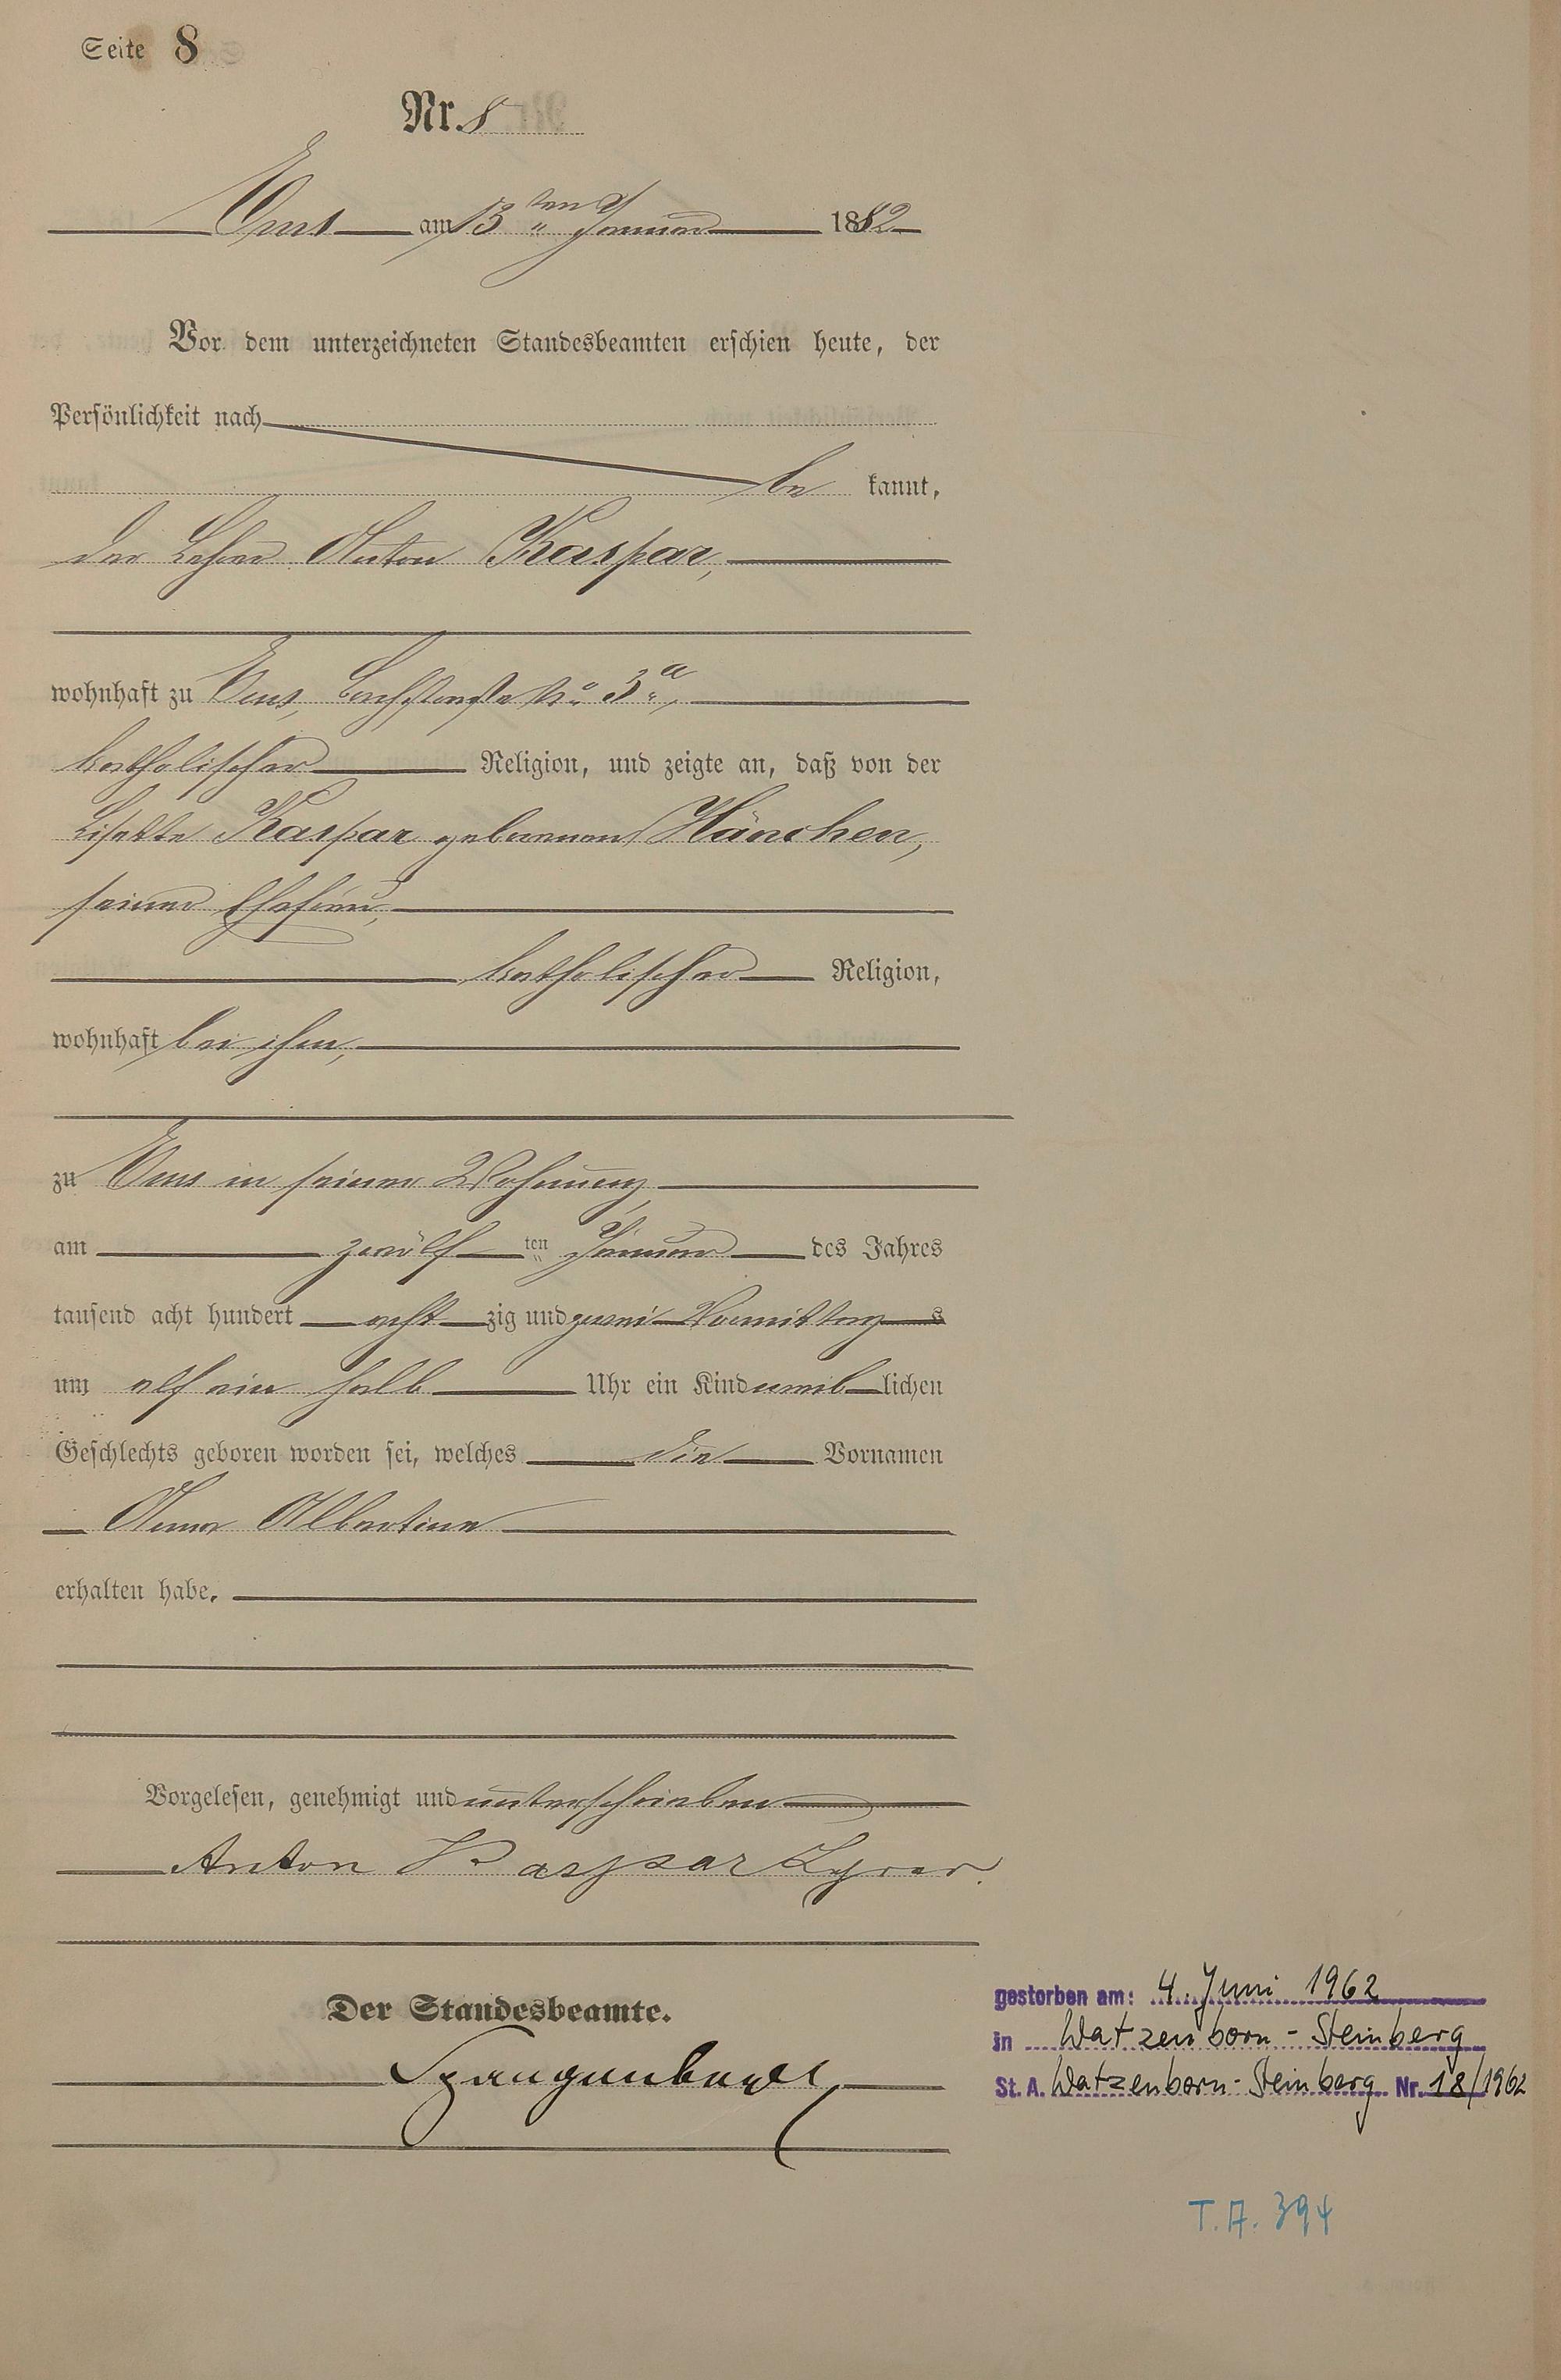 Seite 8
Nr. 8
Ems am 13ten Januar 1882
Vor dem unterzeichneten Standesbeamten erschien heute, der
Persönlichkeit nach
be kannt,
der Lehrer Anton Kaspar,
wohnhaft zu Ems, No 3a,
katholischer Religion, und zeigte an, daß von der
Lisette Kaspar geborenen Hänchen,
seiner Ehefrau,
katholischer Religion,
wohnhaft bei ihm,
zu Ems in seiner Wohnung,
am zwölf ten Januar des Jahres
tausend acht hundert acht zig und zwei Vormittag s
um elf ein halb Uhr ein Kind weib lichen
Geschlechts geboren worden sei, welches die Vornamen
Anna Albertine
erhalten habe.
Vorgelesen, genehmigt und unterschrieben
Anton Kaspar
Der Standesbeamte.
gestorben am: 4. Juni 1962
in Watzenborn-Steinberg
St. A. Watzenborn-Steinberg Nr. 18/1962
T.A. 394